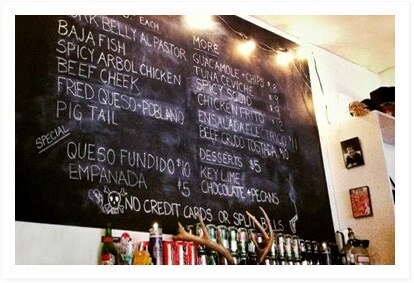 EACH
PORK BELLY AL PASTOR
BAJA FISH
SPICY ARBOL CHICKEN
BEEF CHEEK
FRIED QUESO + POBLANO
PIG TAIL
SPECIAL
QUESO FUNDIDO $10
EMPANADA $5
MORE
GUACAMOLE + CHIPS $8
TUNA CEVICHE $9
SPICY
CHICKEN FRITO
ENSALADA
BEEF CRUDO TOSTADA
DESSERTS $5
KEY LIME
CHOCOLATE + PECANS
NO CREDIT CARDS OR SPLIT BILLS